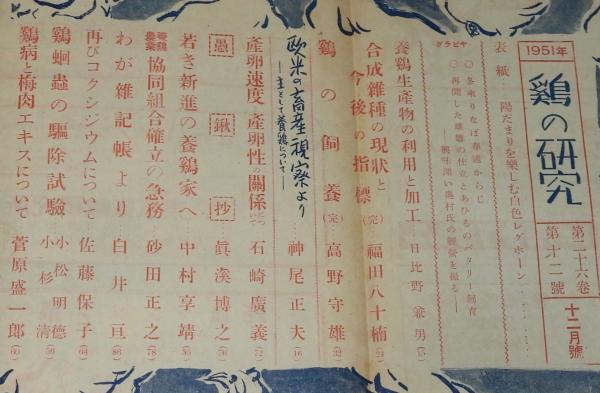 1951年
鷄の研究
第二十六卷
第十二號
十二月號
表紙…陽だまりを樂しむ白色レグホーン
グラビヤ
○冬來りなば春遠からじ
○再開した雄雛の仕立とあひるのバタリー飼育
—興味深い奥村氏の經營を探る—
養鷄生產物の利用と加工 日比野兼男(15)
合成雜種の現狀と
今後の指標(完) 福田八十楠(21)
鷄の飼養(完) 高野守雄(32)
欧米の畜産視察より
—主として養鶏について— 神尾正夫(16)
產卵速度と產卵性の關係について 石崎廣義(72)
愚鍬抄 眞溪博之(76)
若き新進の養鷄家へ 中村享靖(36)
養鷄農業協同組合確立の急務 砂田正之(78)
わが雜記帳より 白井亘(86)
再びコクシジウムについて 佐藤保子(64)
鷄蛔蟲の驅除試驗 小松明德
小杉淸(50)
鷄病と梅肉エキスについて 菅原盛一郎(60)